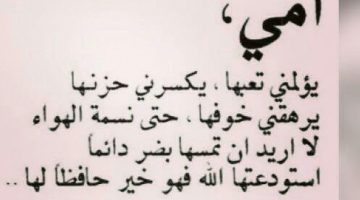 أمي،
يؤلمني تعبها ، يكسرني حزنها
يرهقني خوفها ، حتى نسمة الهواء
لا اريد ان تمسها بضر دائماً
استودعتها الله فهو خير حافظاً لها ..